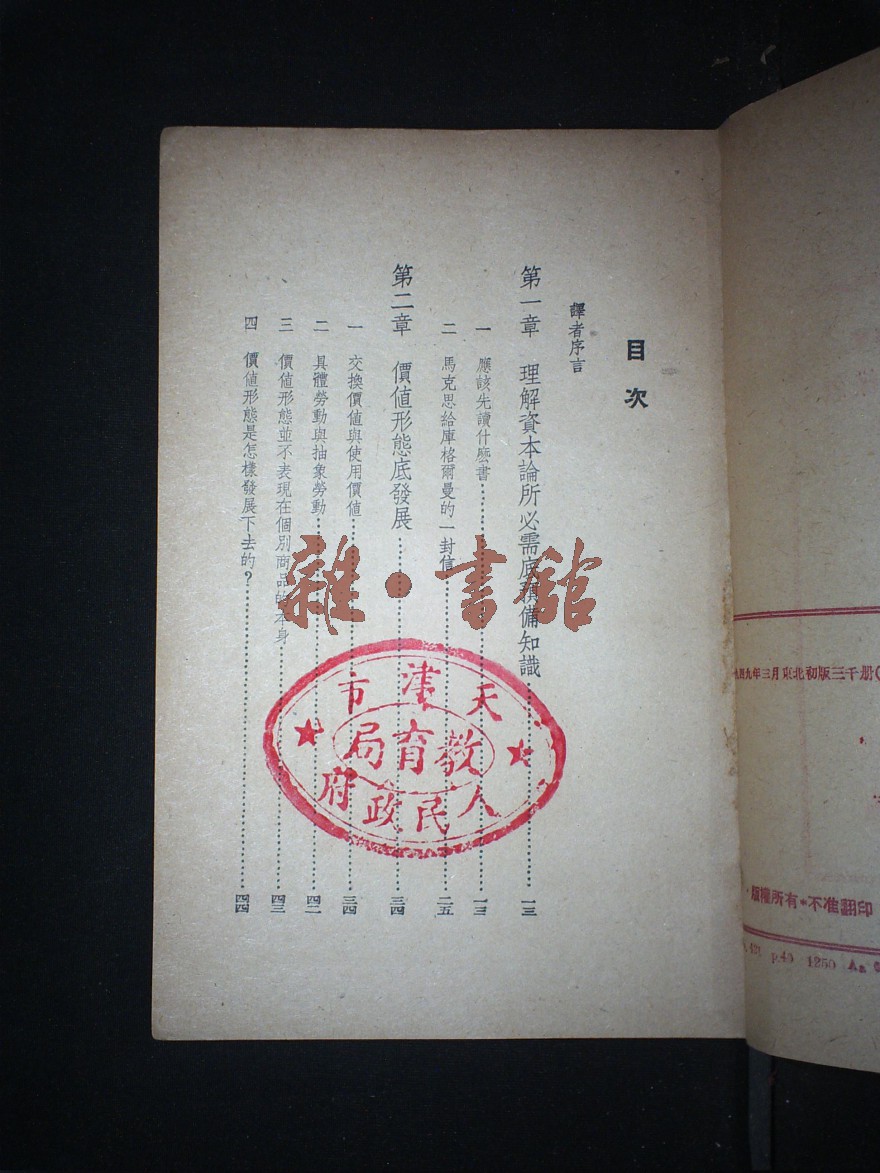 目次
譯者序言
第一章 理解資本論所必需底預備知識……一三
一 應該先讀什麼書……一三
二 馬克思給庫格爾曼的一封信……二五
第二章 價値形態底發展……三四
一 交換價値與使用價値……三四
二 具體勞動與抽象勞動……四二
三 價値形態並不表現在個別商品的本身……四三
四 價値形態是怎樣發展下去的？……四四
雜·書舘
天津市
教育局
人民政府
九四九年三月東北初版三千册(
版權所有*不准翻印
p.40 1250